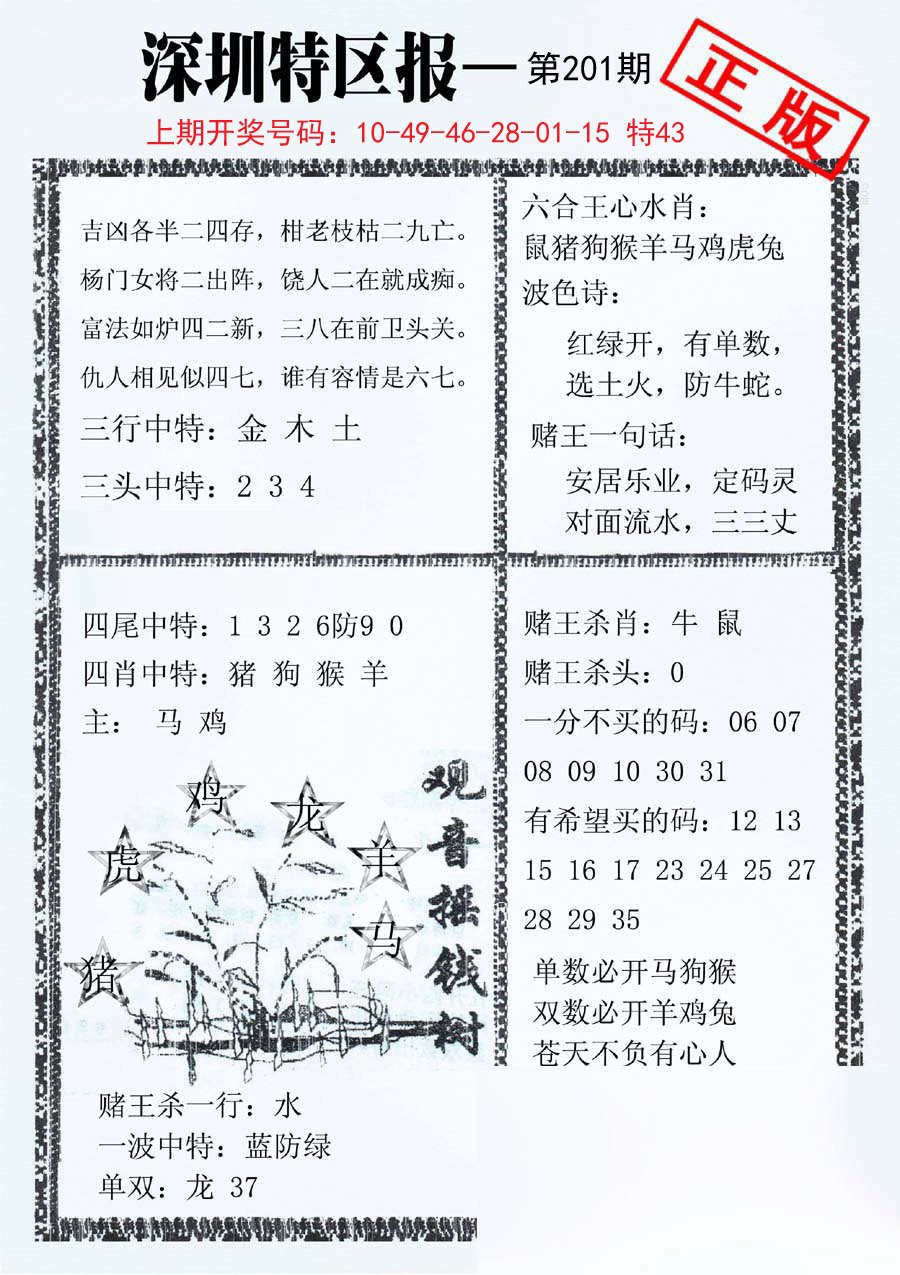 深圳特区报—第201期
正版
上期开奖号码：10-49-46-28-01-15 特43
吉凶各半二四存，柑老枝枯二九亡。
杨门女将二出阵，饶人二在就成痴。
富法如炉四二新，三八在前卫头关。
仇人相见似四七，谁有容情是六七。
三行中特：金 木 土
三头中特：2 3 4
六合王心水肖：
鼠猪狗猴羊马鸡虎兔
波色诗：
红绿开，有单数，
选土火，防牛蛇。
赌王一句话：
安居乐业，定码灵
对面流水，三三丈
四尾中特：1 3 2 6防9 0
四肖中特：猪 狗 猴 羊
主： 马 鸡
鸡
龙
虎
羊
马
猪
观音摇钱树
赌王杀一行：水
一波中特：蓝防绿
单双：龙 37
赌王杀肖：牛 鼠
赌王杀头：0
一分不买的码：06 07
08 09 10 30 31
有希望买的码：12 13
15 16 17 23 24 25 27
28 29 35
单数必开马狗猴
双数必开羊鸡兔
苍天不负有心人